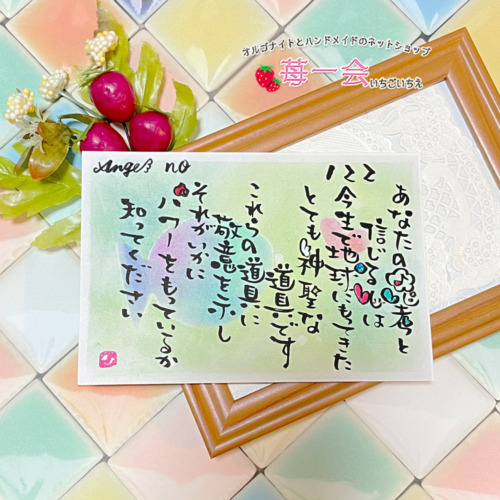 オルゴナイトとハンドメイドのネットショップ
苺一会
いちごいちえ
Angel no
あなたの思考と
信じる心は
12今生で地球にもてきた
とても神聖な
道具です
これらの道具に
敬意を示し
それがいかに
パワーをもっているか
知ってください